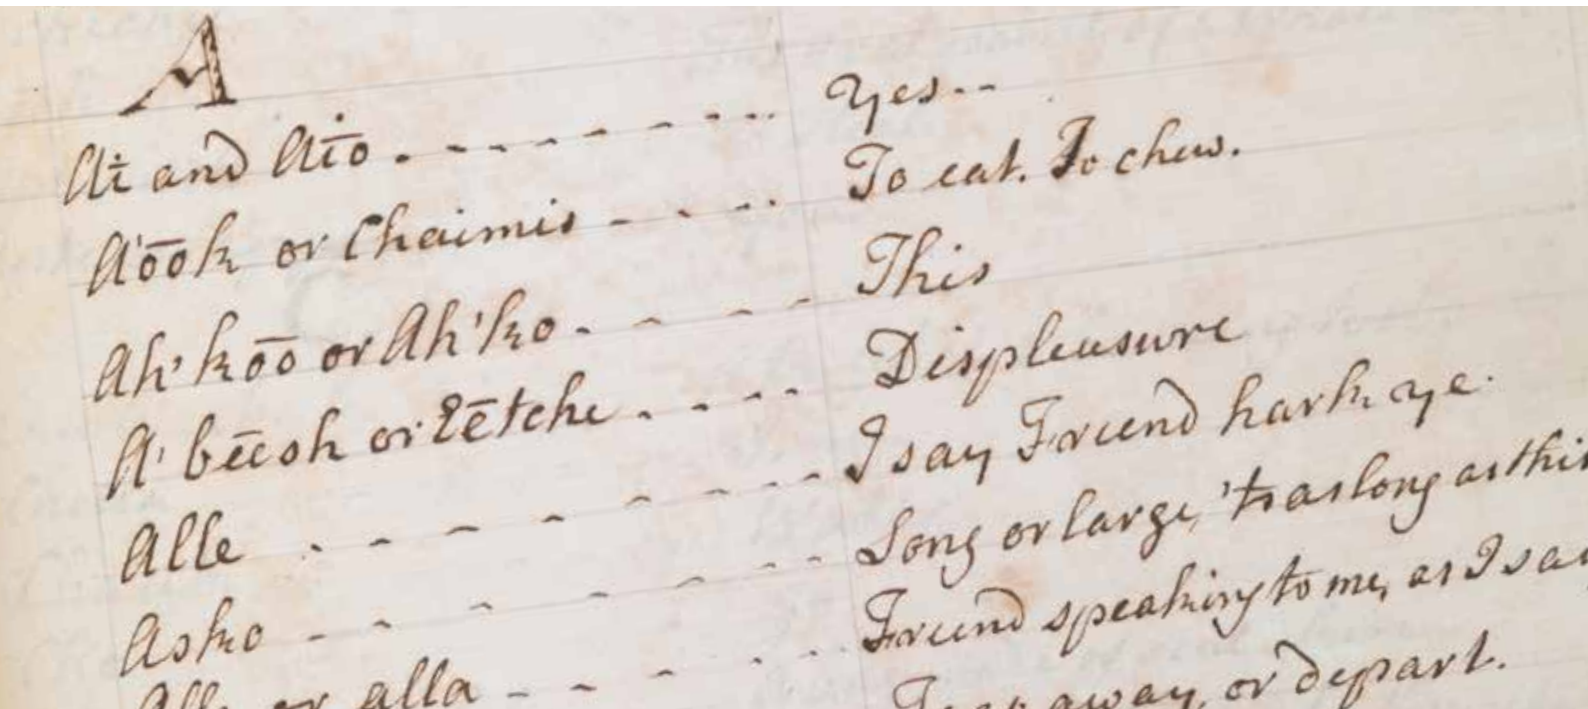 A
Ai and Aīo . - - - - - - - .. Yes--
A'ōōk or Chaimis - - - .. To eat. To chew.
Ah'kōō or Ah'ko - - - - This
A'bēēsh or Eētche - - - - Displeasure
Alle . - - - - - - - I say Friend hark ye.
Asko - - - - - - - Long or large, 'tis as long as this
or alla - - - - - - Friend speaking to me, as I say
away, or depart.